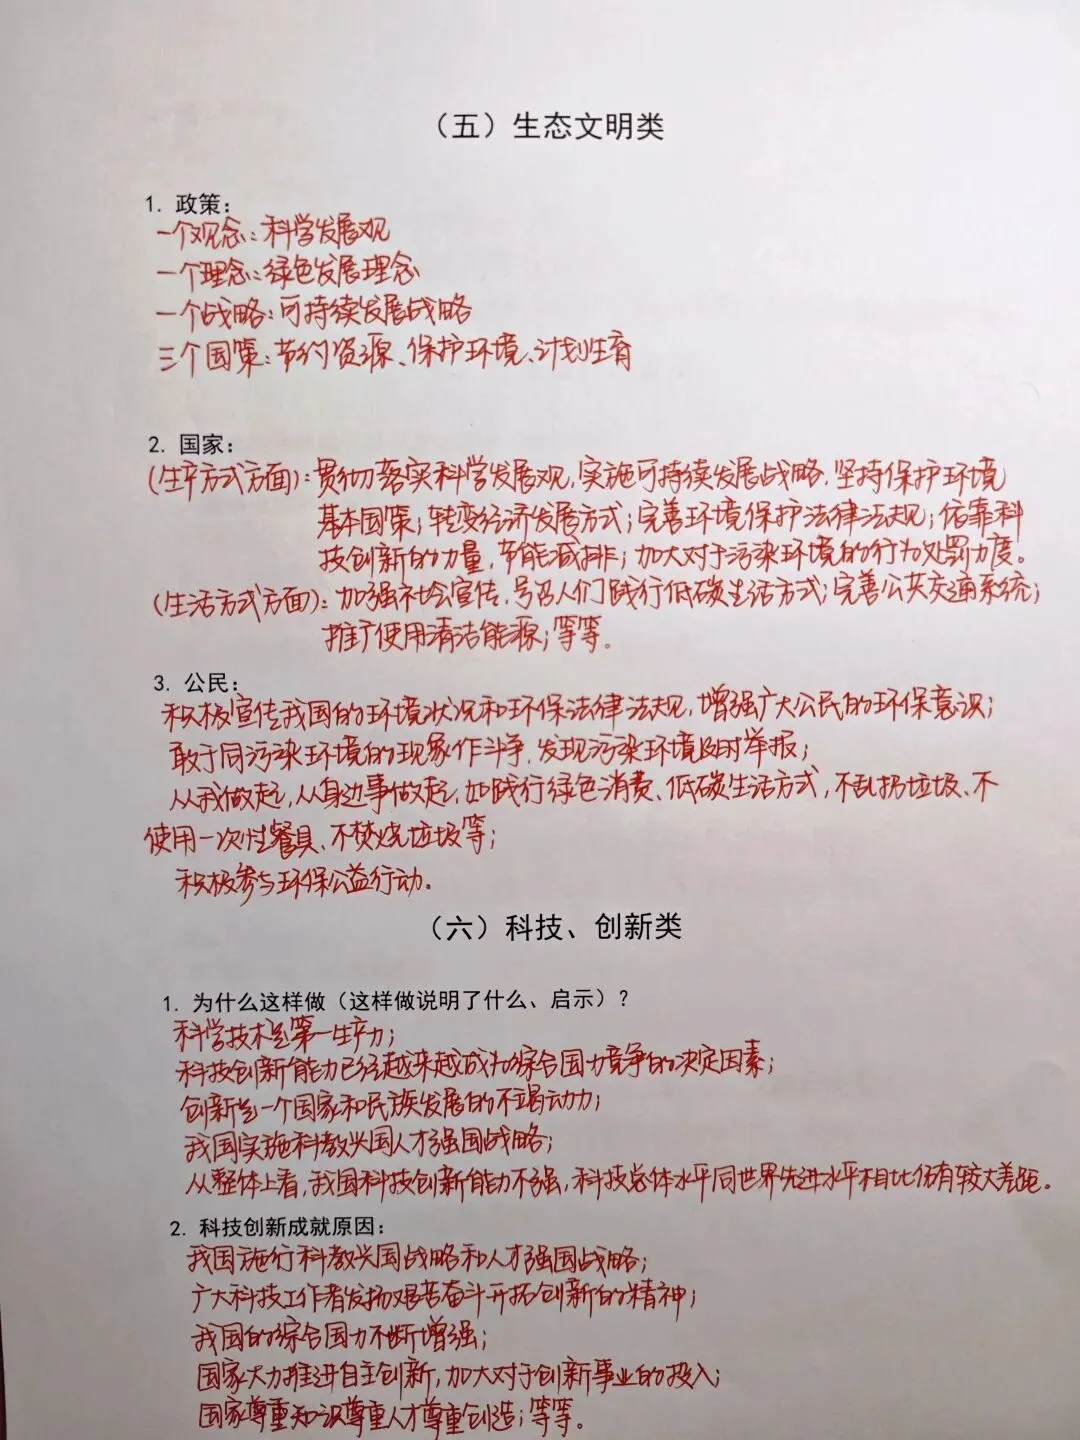 （五）生态文明类
1. 政策：
一个观念：科学发展观
一个理念：绿色发展理念
一个战略：可持续发展战略
三个国策：节约资源、保护环境、计划生育
2. 国家：
(生产方式方面)：贯彻落实科学发展观，实施可持续发展战略，坚持保护环境
基本国策；转变经济发展方式；完善环境保护法律法规；依靠科
技创新的力量，节能减排；加大对于污染环境的行为处罚力度。
(生活方式方面)：加强社会宣传，号召人们践行低碳生活方式；完善公共交通系统；
推广使用清洁能源；等等。
3. 公民：
积极宣传我国的环境状况和环保法律法规，增强广大公民的环保意识；
敢于同污染环境的现象作斗争，发现污染环境及时举报；
从我做起，从身边事做起，如践行绿色消费、低碳生活方式，不乱扔垃圾、不
使用一次性餐具、不焚烧垃圾等；
积极参与环保公益行动。
（六）科技、创新类
1. 为什么这样做（这样做说明了什么、启示）？
科学技术是第一生产力；
科技创新能力已经越来越成为综合国力竞争的决定因素；
创新是一个国家和民族发展的不竭动力；
我国实施科教兴国人才强国战略；
从整体上看，我国科技创新能力不强，科技总体水平同世界先进水平相比仍有较大差距。
2. 科技创新成就原因：
我国施行科教兴国战略和人才强国战略；
广大科技工作者发扬艰苦奋斗开拓创新的精神；
我国的综合国力不断增强；
国家大力推进自主创新，加大对于创新事业的投入；
国家尊重知识尊重人才尊重创造；等等。